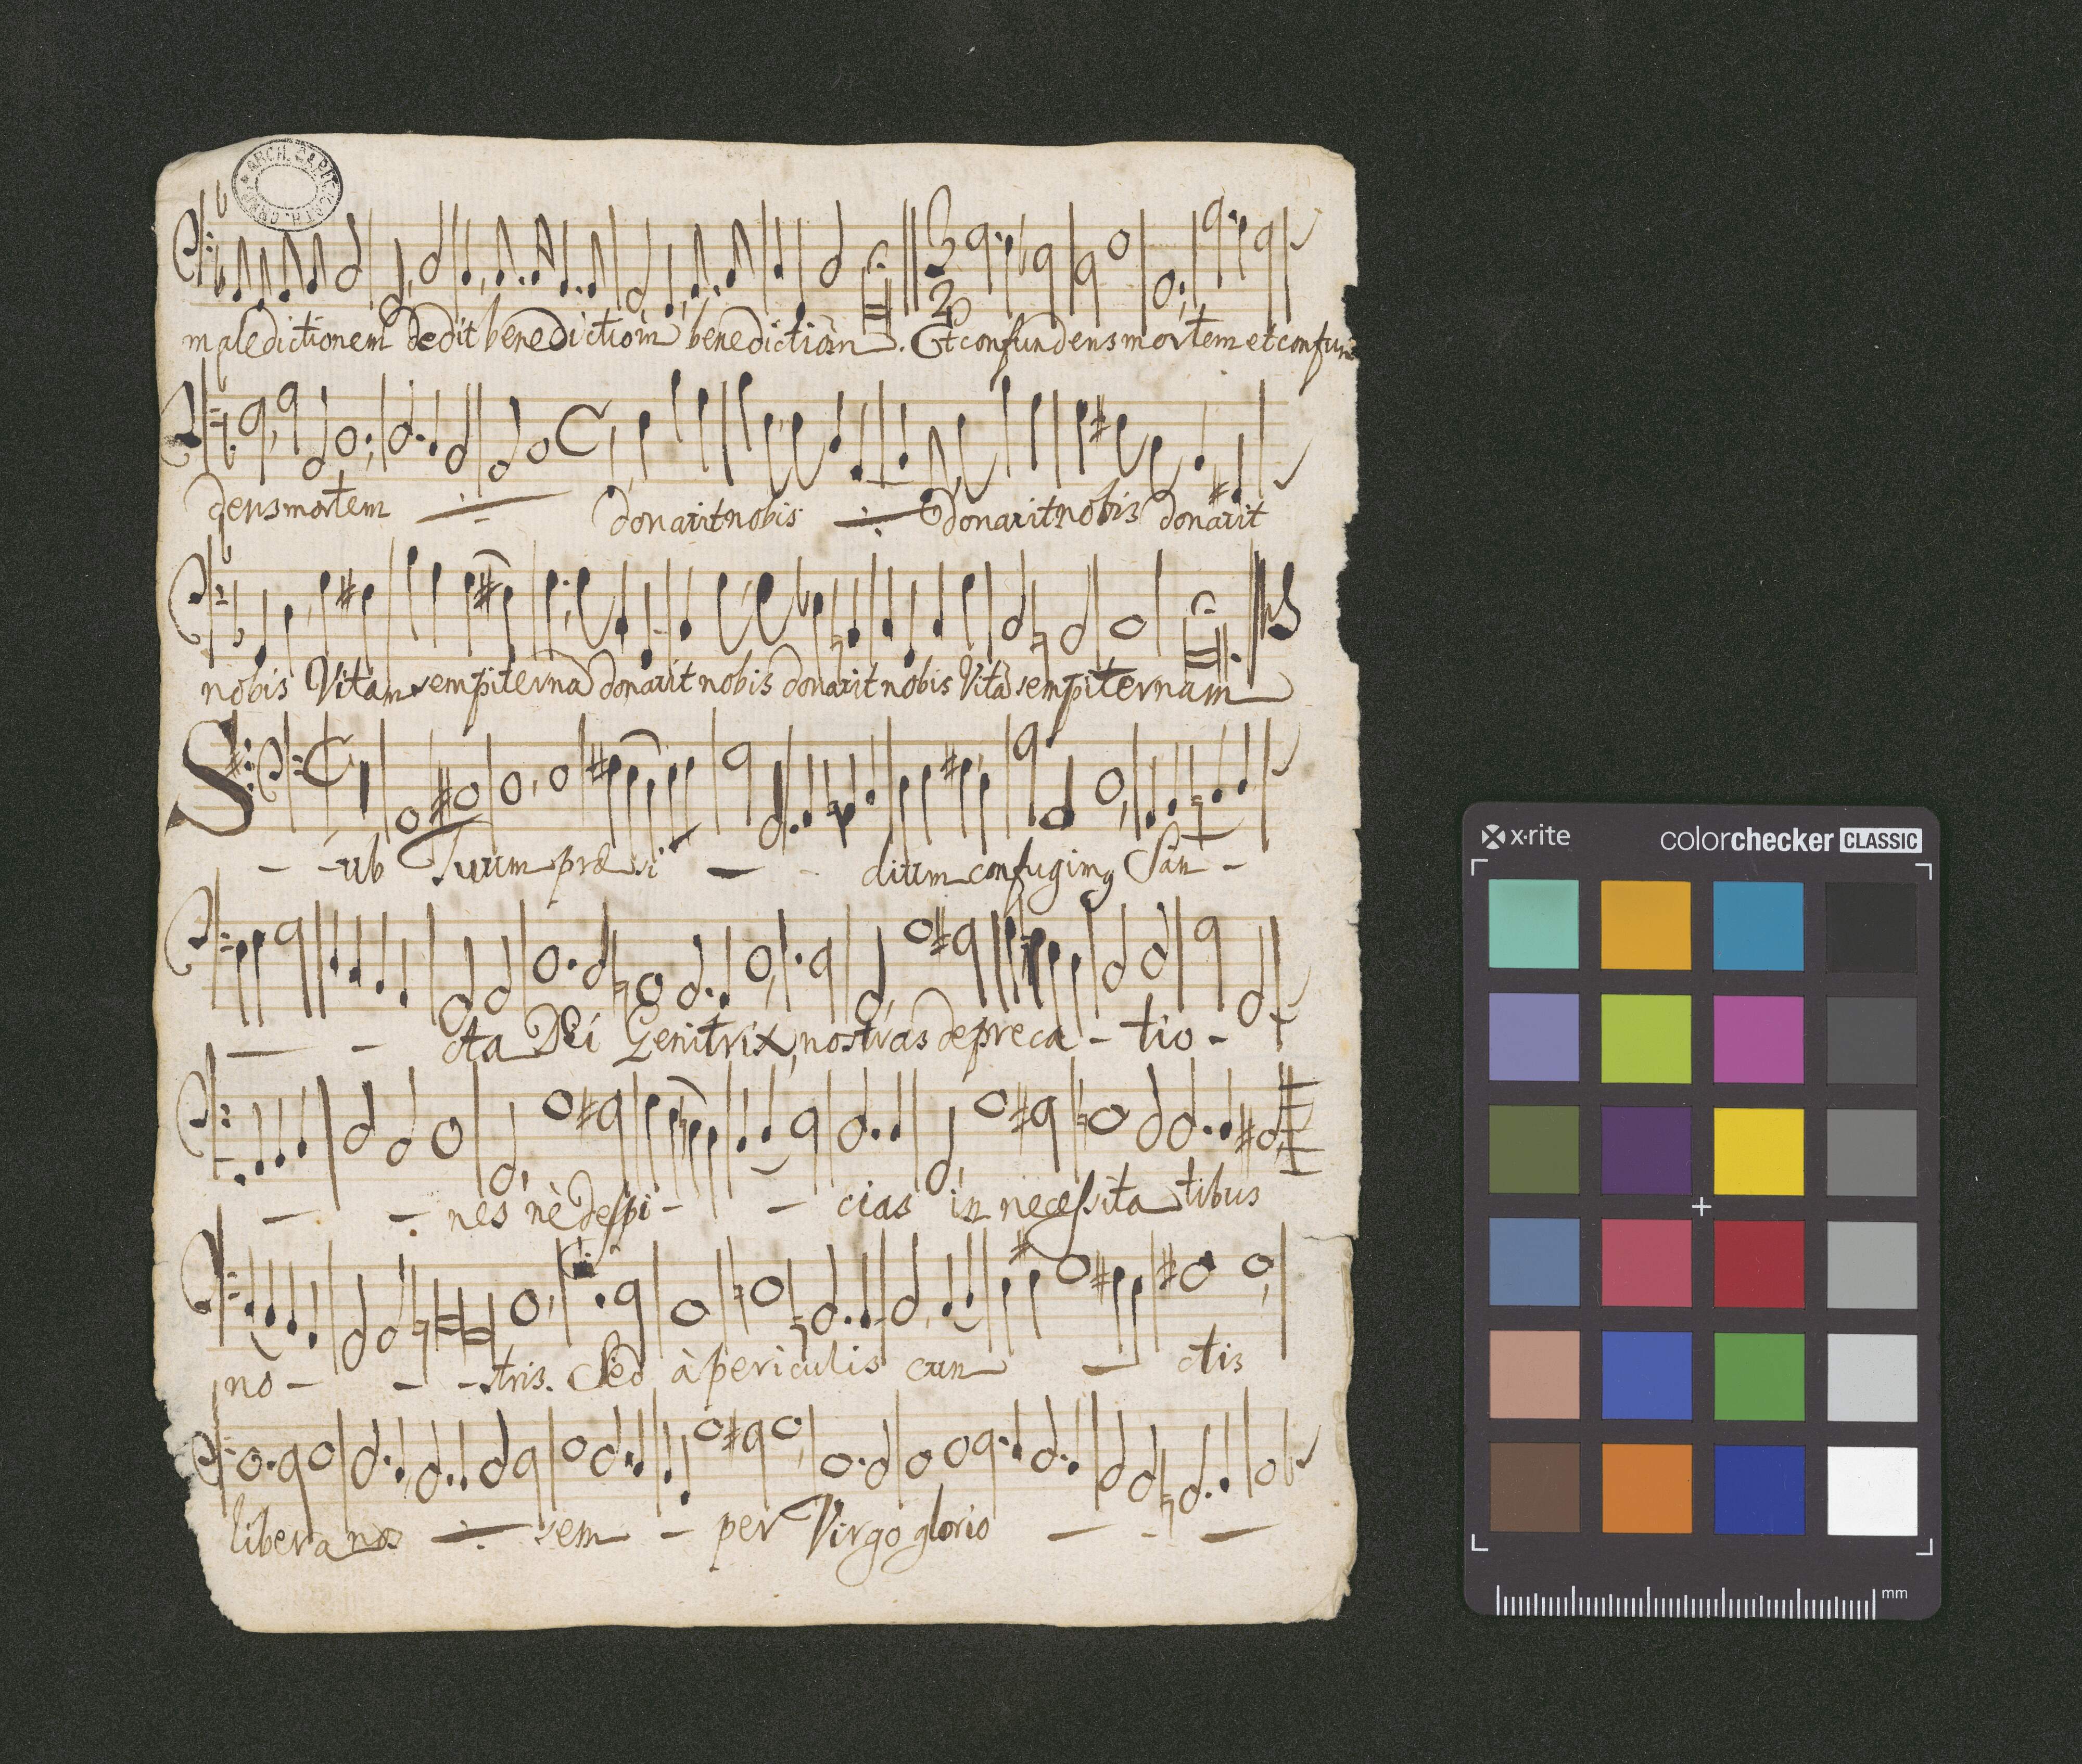 ARCH. CAPIT.
maledictionem dedit benedictiom benedictiom. Et confundens mortem et confun
dens mortem donarit nobis donarit nobis donarit
nobis Vitam sempiterna donarit nobis donarit nobis Vitã sempiternam
S - - ub Tuum præsi - - dium confugimꝰ San -
- - cta Dei Genitrix, nostras depreca - tio -
- - nes nè despi - - cias in necessita tibus
no - - - stris. Sed à periculis cun - ctis
libera nos sem - per Virgo glorio - - -
x-rite colorchecker CLASSIC
mm